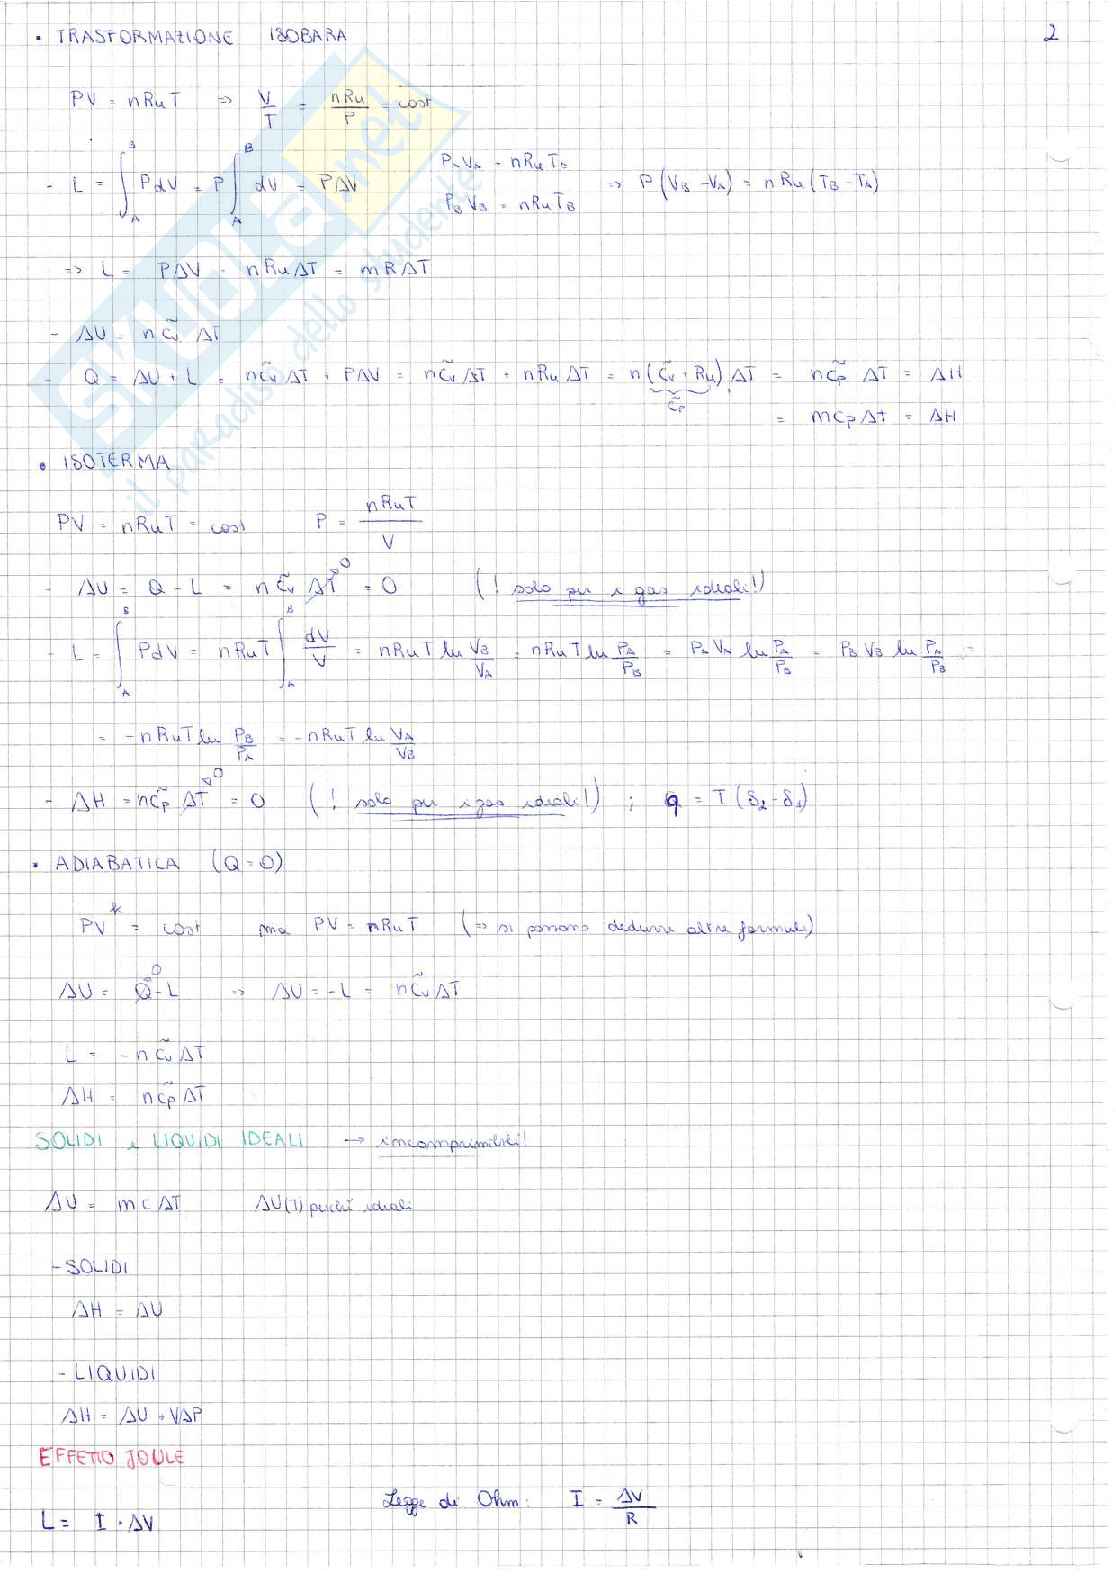 • TRASFORMAZIONE ISOBARA 2
PV = nRuT => V/T = nRu/P = cost
- L = ∫_A^B PdV = P ∫_A^B dV = PΔV PAVA = nRuTA PBVB = nRuTB => P(VB - VA) = nRu(TB - TA)
=> L = PΔV = nRuΔT = mRΔT
- ΔU = nc̃v ΔT
- Q = ΔU + L = nc̃vΔT + PΔV = nc̃vΔT + nRuΔT = n(c̃v + Ru)ΔT = nc̃p ΔT = ΔH
c̃p = mcpΔt = ΔH
• ISOTERMA
PV = nRuT = cost P = nRuT/V
- ΔU = Q - L = nc̃v ΔT→0 = 0 (! solo per i gas ideali!)
- L = ∫_A^B PdV = nRuT ∫_A^B dV/V = nRuT ln VB/VA = nRuT ln PA/PB = PAVA ln PA/PB = PBVB ln PA/PB =
= -nRuT ln PB/PA = -nRuT ln VA/VB
- ΔH = nc̃p ΔT→0 = 0 (! solo per i gas ideali!) ; q = T(s2 - s1)
• ADIABATICA (Q=0)
PV^k = cost ma PV = nRuT (=> si possono dedurre altre formule)
ΔU = Q→0 - L => ΔU = -L = nc̃vΔT
L = -nc̃vΔT
ΔH = nc̃pΔT
SOLIDI e LIQUIDI IDEALI → incomprimibili!
ΔU = mcΔT ΔU(T) perché ideali
- SOLIDI
ΔH = ΔU
- LIQUIDI
ΔH = ΔU + VΔP
EFFETTO JOULE
Legge di Ohm: I = ΔV/R
L = I · ΔV
SKUOLA.net
il paradiso dello studente